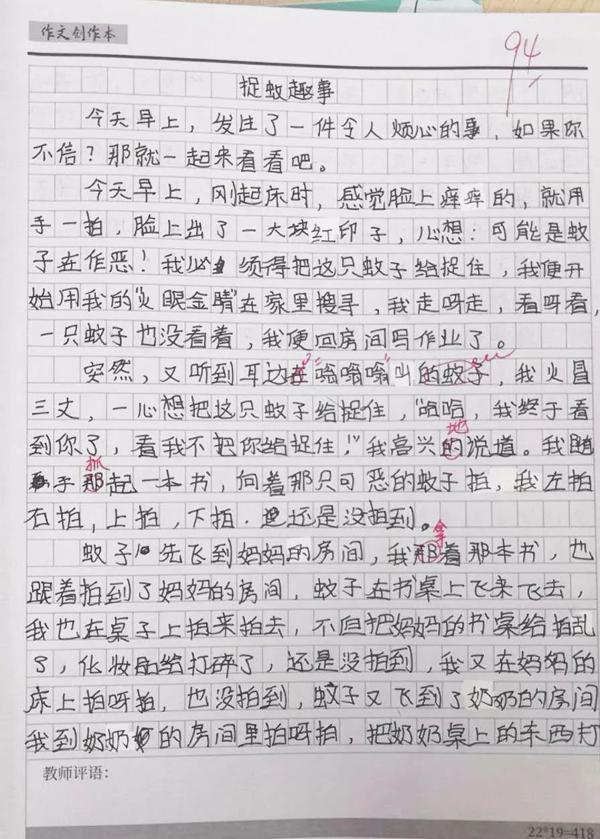 作文创作本
94
捉蚊趣事
今天早上，发生了一件令人烦心的事，如果你
不信？那就一起来看看吧。
今天早上，刚起床时，感觉脸上痒痒的，就用
手一拍，脸上出了一大块红印子，心想：可能是蚊
子在作恶！我必须得把这只蚊子给捉住，我便开
始用我的“火眼金睛”在家里搜寻，我走呀走，看呀看，
一只蚊子也没看着，我便回房间写作业了。
突然，又听到耳边在“嗡嗡嗡”叫的蚊子，我火冒
三丈，一心想把这只蚊子给捉住，“哈哈，我终于看
地
到你了，看我不把你给捉住！”我高兴的说道。我随
抓
手那起一本书，向着那只可恶的蚊子拍，我左拍
右拍，上拍，下拍．还是没拍到。
拿
蚊子先飞到妈妈的房间，我那着那本书，也
跟着拍到了妈妈的房间，蚊子在书桌上飞来飞去，
我也在桌子上拍来拍去，不但把妈妈的书桌给拍乱
了，化妆品给打碎了，还是没拍到，我又在妈妈的
床上拍呀拍，也没拍到，蚊子又飞到了奶奶的房间
我到奶奶的房间里拍呀拍，把奶奶桌上的东西打
教师评语：
22*19=418